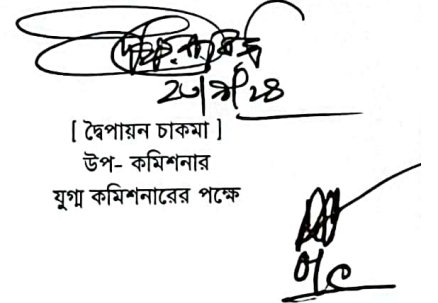 ২০/৯/২৪
[ দ্বৈপায়ন চাকমা ]
উপ- কমিশনার
যুগ্ম কমিশনারের পক্ষে